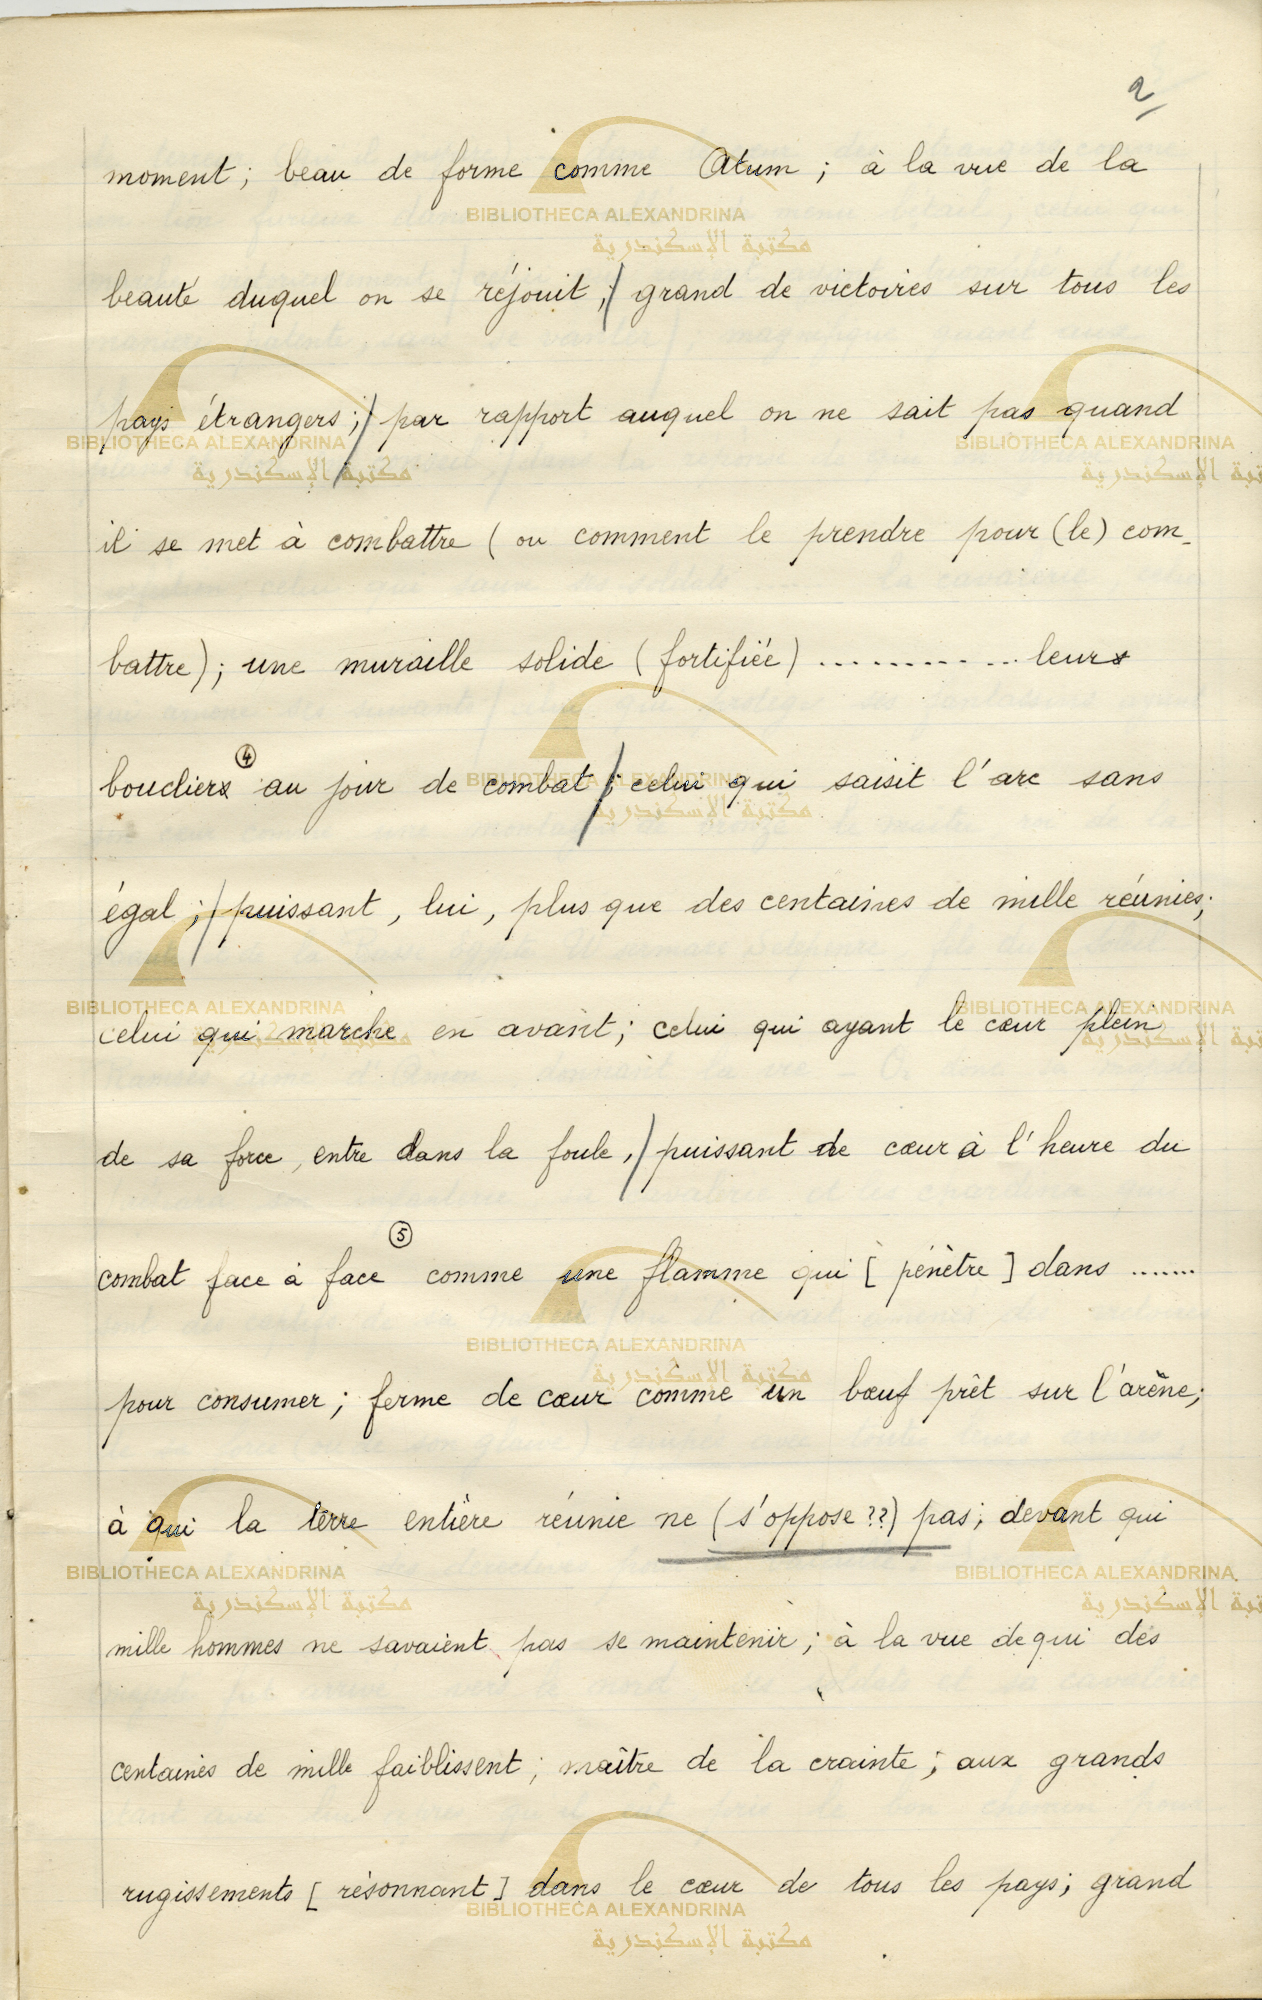 2/
moment ; beau de forme comme Atum ; à la vue de la
beauté duquel on se réjouit ;/ grand de victoires sur tous les
pays étrangers ;/ par rapport auquel on ne sait pas quand
il se met à combattre ( ou comment le prendre pour (le) com-
battre) ; une muraille solide ( fortifiée) ............ leurs
boucliers ④ au jour de combat /; celui qui saisit l'arc sans
égal ;/ puissant, lui, plus que des centaines de mille réunies ;
celui qui marche en avant ; celui qui ayant le cœur plein
de sa force, entre dans la foule, / puissant de cœur à l'heure du
combat face à face ⑤ comme une flamme qui [ pénètre ] dans .......
pour consumer ; ferme de cœur comme un bœuf prêt sur l'arène ;
à qui la terre entière réunie ne (s'oppose ??) pas ; devant qui
mille hommes ne savaient pas se maintenir ; à la vue de qui des
centaines de mille faiblissent ; maître de la crainte ; aux grands
rugissements [ résonnant ] dans le cœur de tous les pays ; grand
BIBLIOTHECA ALEXANDRINA
مكتبة الإسكندرية